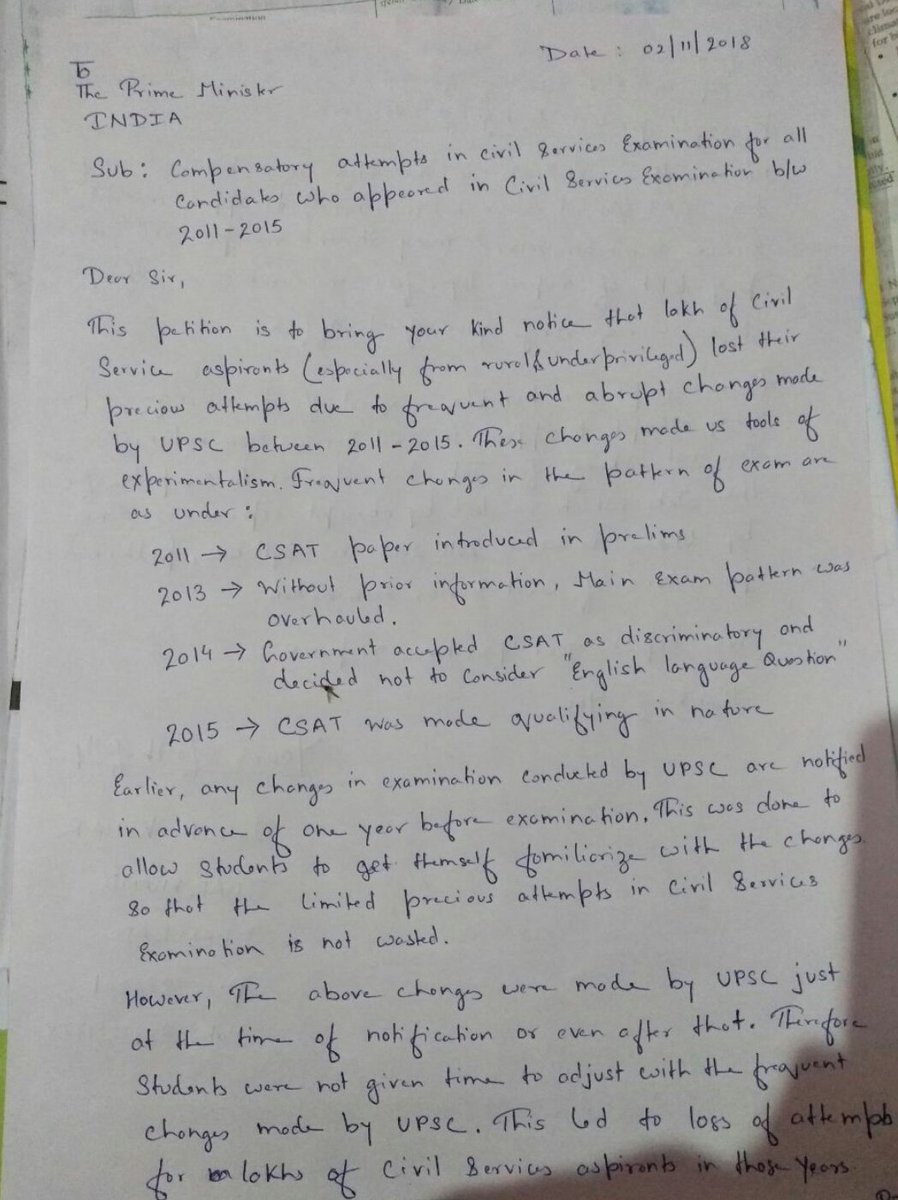 Date : 02/11/2018
To
The Prime Minister
INDIA
Sub : Compensatory attempts in civil Services Examination for all
Candidates who appeared in Civil Services Examination b/w
2011-2015
Dear Sir,
This petition is to bring your kind notice that lakh of Civil
Service aspirants (especially from rural & underprivileged) lost their
precious attempts due to frequent and abrupt changes made
by UPSC between 2011-2015. These changes made us tools of
experimentalism. Frequent changes in the pattern of exam are
as under :
2011 → CSAT paper introduced in prelims
2013 → Without prior information, Main Exam pattern was
overhauled.
2014 → Government accepted CSAT as discriminatory and
decided not to consider "English language Question"
2015 → CSAT was made qualifying in nature
Earlier, any changes in examination conducted by UPSC are notified
in advance of one year before examination. This was done to
allow students to get themself familiarize with the changes.
So that the limited precious attempts in Civil Services
Examination is not wasted.
However, The above changes were made by UPSC just
at the time of notification or even after that. Therefore
Students were not given time to adjust with the frequent
changes made by UPSC. This led to loss of attempts
for lakhs of Civil Services aspirants in those years.